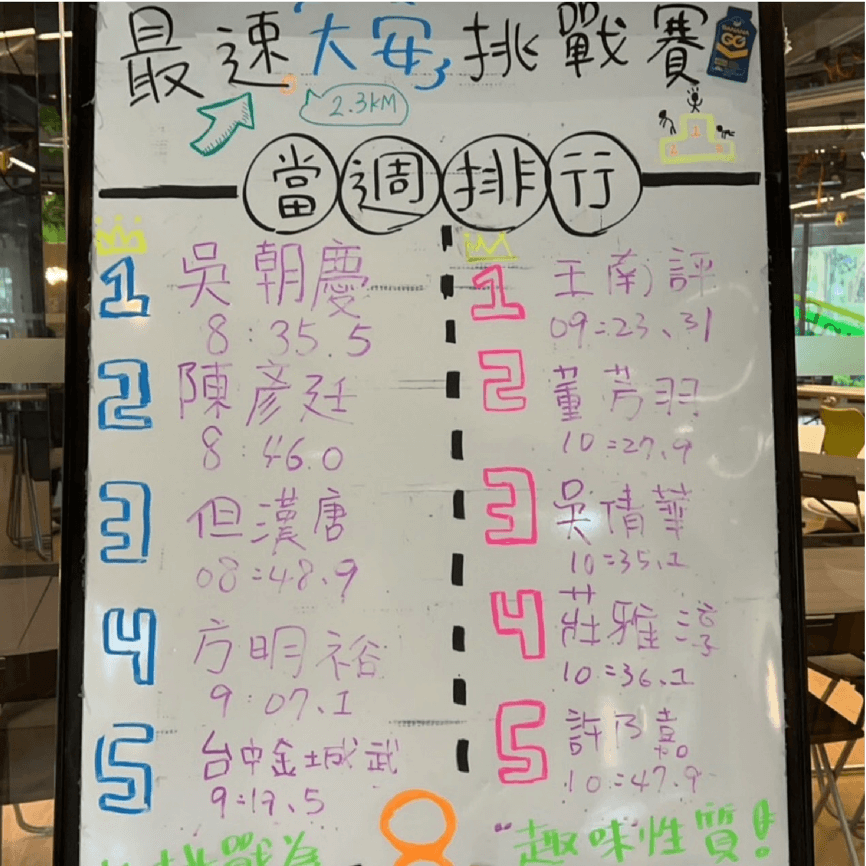 最速大安挑戰賽
BANANA
GG
2.3KM
1
2
3
當週排行
1 吳朝慶
8:35.5
2 陳彥廷
8:46.0
3 但漢唐
08:48.9
4 方明裕
9:07.1
5 台中金城武
9:19.5
1 王南評
09:23.31
2 董芳羽
10:27.9
3 吳倩華
10:35.1
4 莊雅淳
10:36.1
5 許乃嘉
10:47.9
挑戰為
"趣味性質!